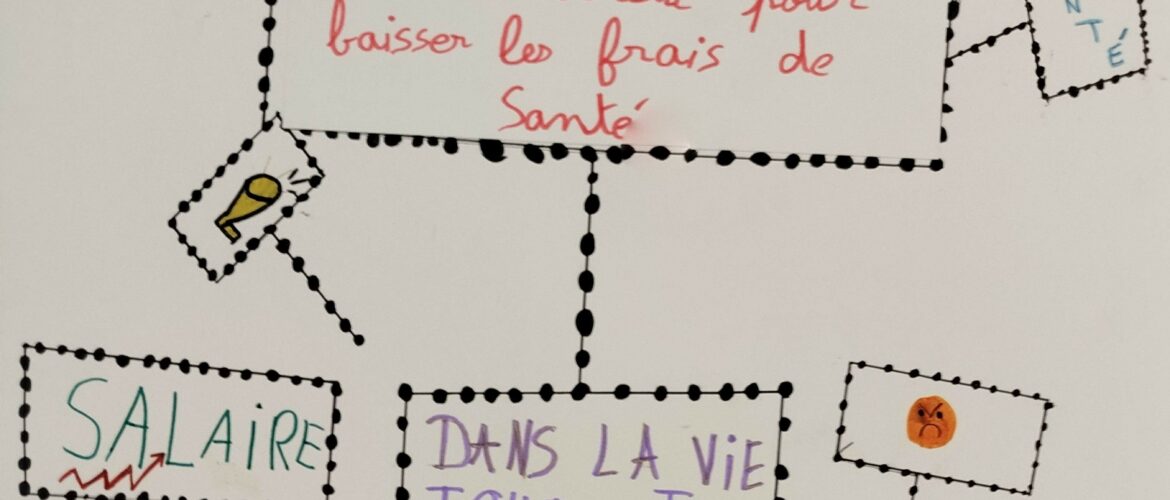 pour
baisser les frais de
Santé
N
T
É
SALAiRE
DANS LA ViE